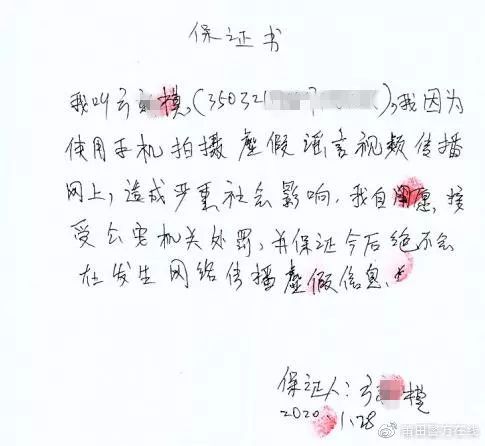 保证书
我叫 模,(350321 ),我因为
使用手机拍摄虚假谣言视频传播
网上,造成严重社会影响,我自愿接
受公安机关处罚,并保证今后绝不会
在发生网络传播虚假信息.
保证人: 模
2020.1.28
@莆田警方在线